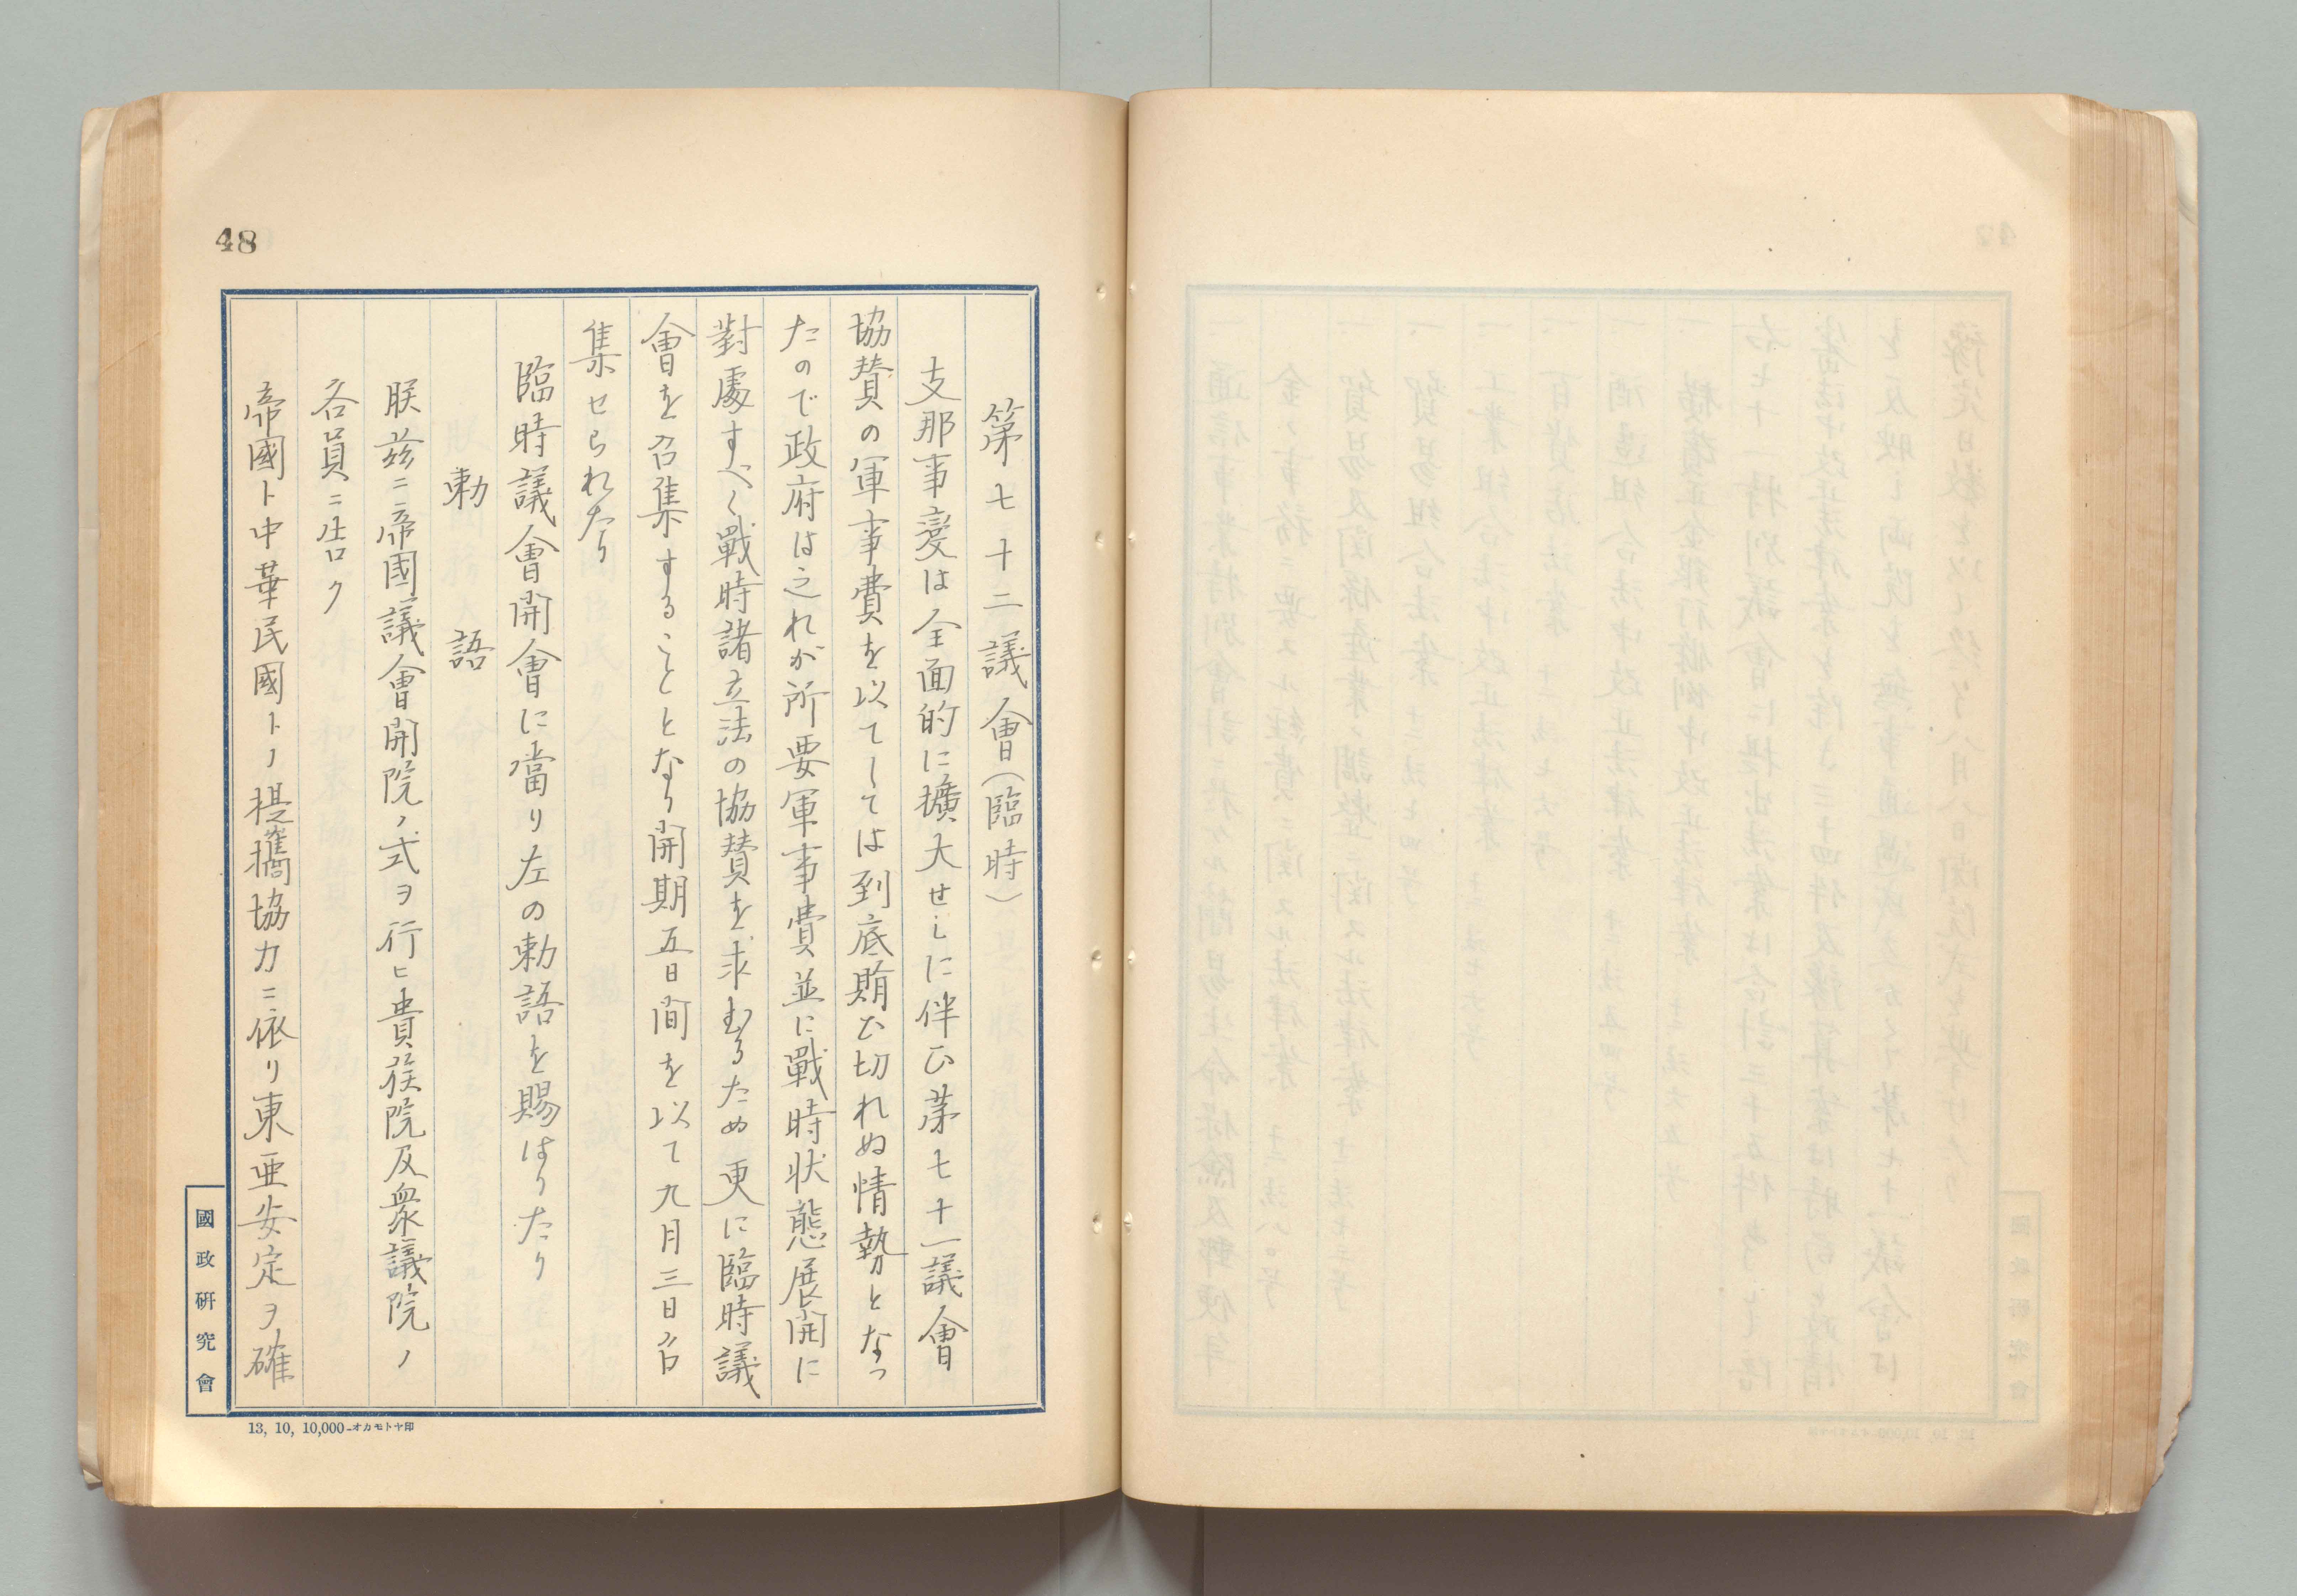 48
第七十二議會（臨時）
支那事変は全面的に擴大せしに伴ひ第七十一議會
協賛の軍事費を以てしては到底賄ひ切れぬ情勢となつ
たので政府は之れが所要軍事費並に戰時状態展開に
對處すべく戰時諸立法の協賛を求むるため更に臨時議
會を召集することとなり開期五日間を以て九月三日召
集せられたり
臨時議會開會に當り左の勅語を賜はりたり
勅語
朕玆ニ帝國議會開院ノ式ヲ行ヒ貴族院及衆議院ノ
各員ニ告ク
帝國ト中華民國トノ提攜協力ニ依リ東亜安定ヲ確
國政研究會
13, 10, 10,000—オカモトヤ印